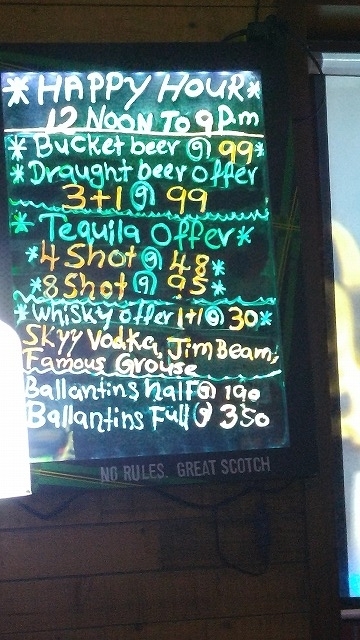 *HAPPY HOUR*
12 NOON TO 9 P.m
*Bucket beer @ 99*
*Draught beer offer
3+1 @ 99
*Tequila Offer*
*4 Shot @ 48*
*8 Shot @ 95*
*Whisky offer 1+1 @ 30*
Skyy Vodka, Jim Beam,
Famous Grouse
Ballantins half @ 190
Ballantins Full @ 350
NO RULES. GREAT SCOTCH